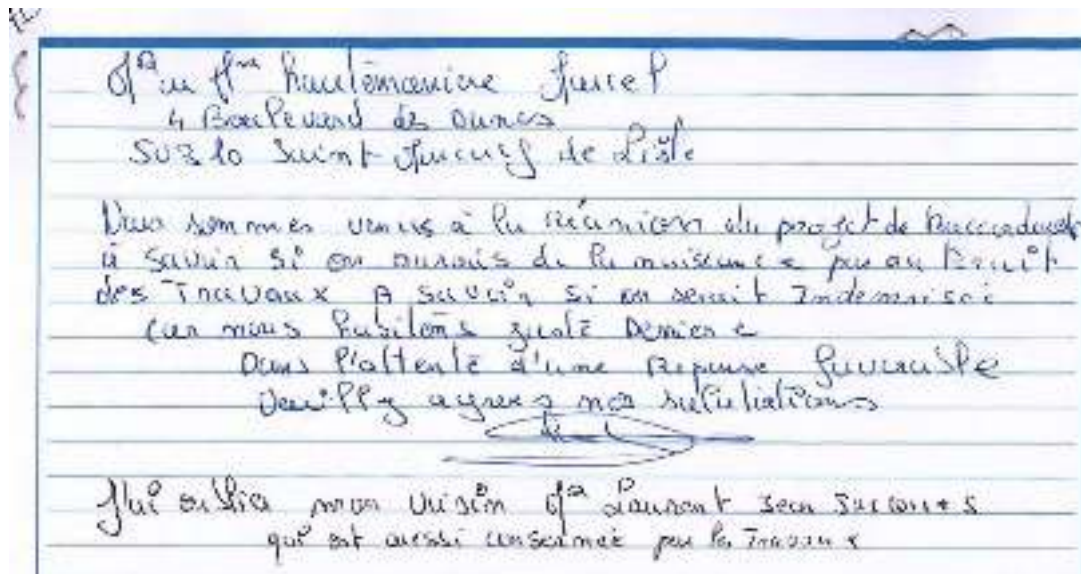 Mr ou Mme hautemaniere
4 Boulevard des Dunes
50310 Saint Marcouf de Lisle
Nous sommes venus à la réunion du projet de Raccordement
à savoir si on aurais de la nuisance par au Bruit
des Travaux A savoir si on serait Indemnisée
car nous habitons juste Derriere
Dans l'attente d'une Reponse favorable
Veuilley agrees nos salutations
J'ai oublier mon voisin Mr Laurent Jean Jacques
qui est aussi consernée par les Travaux